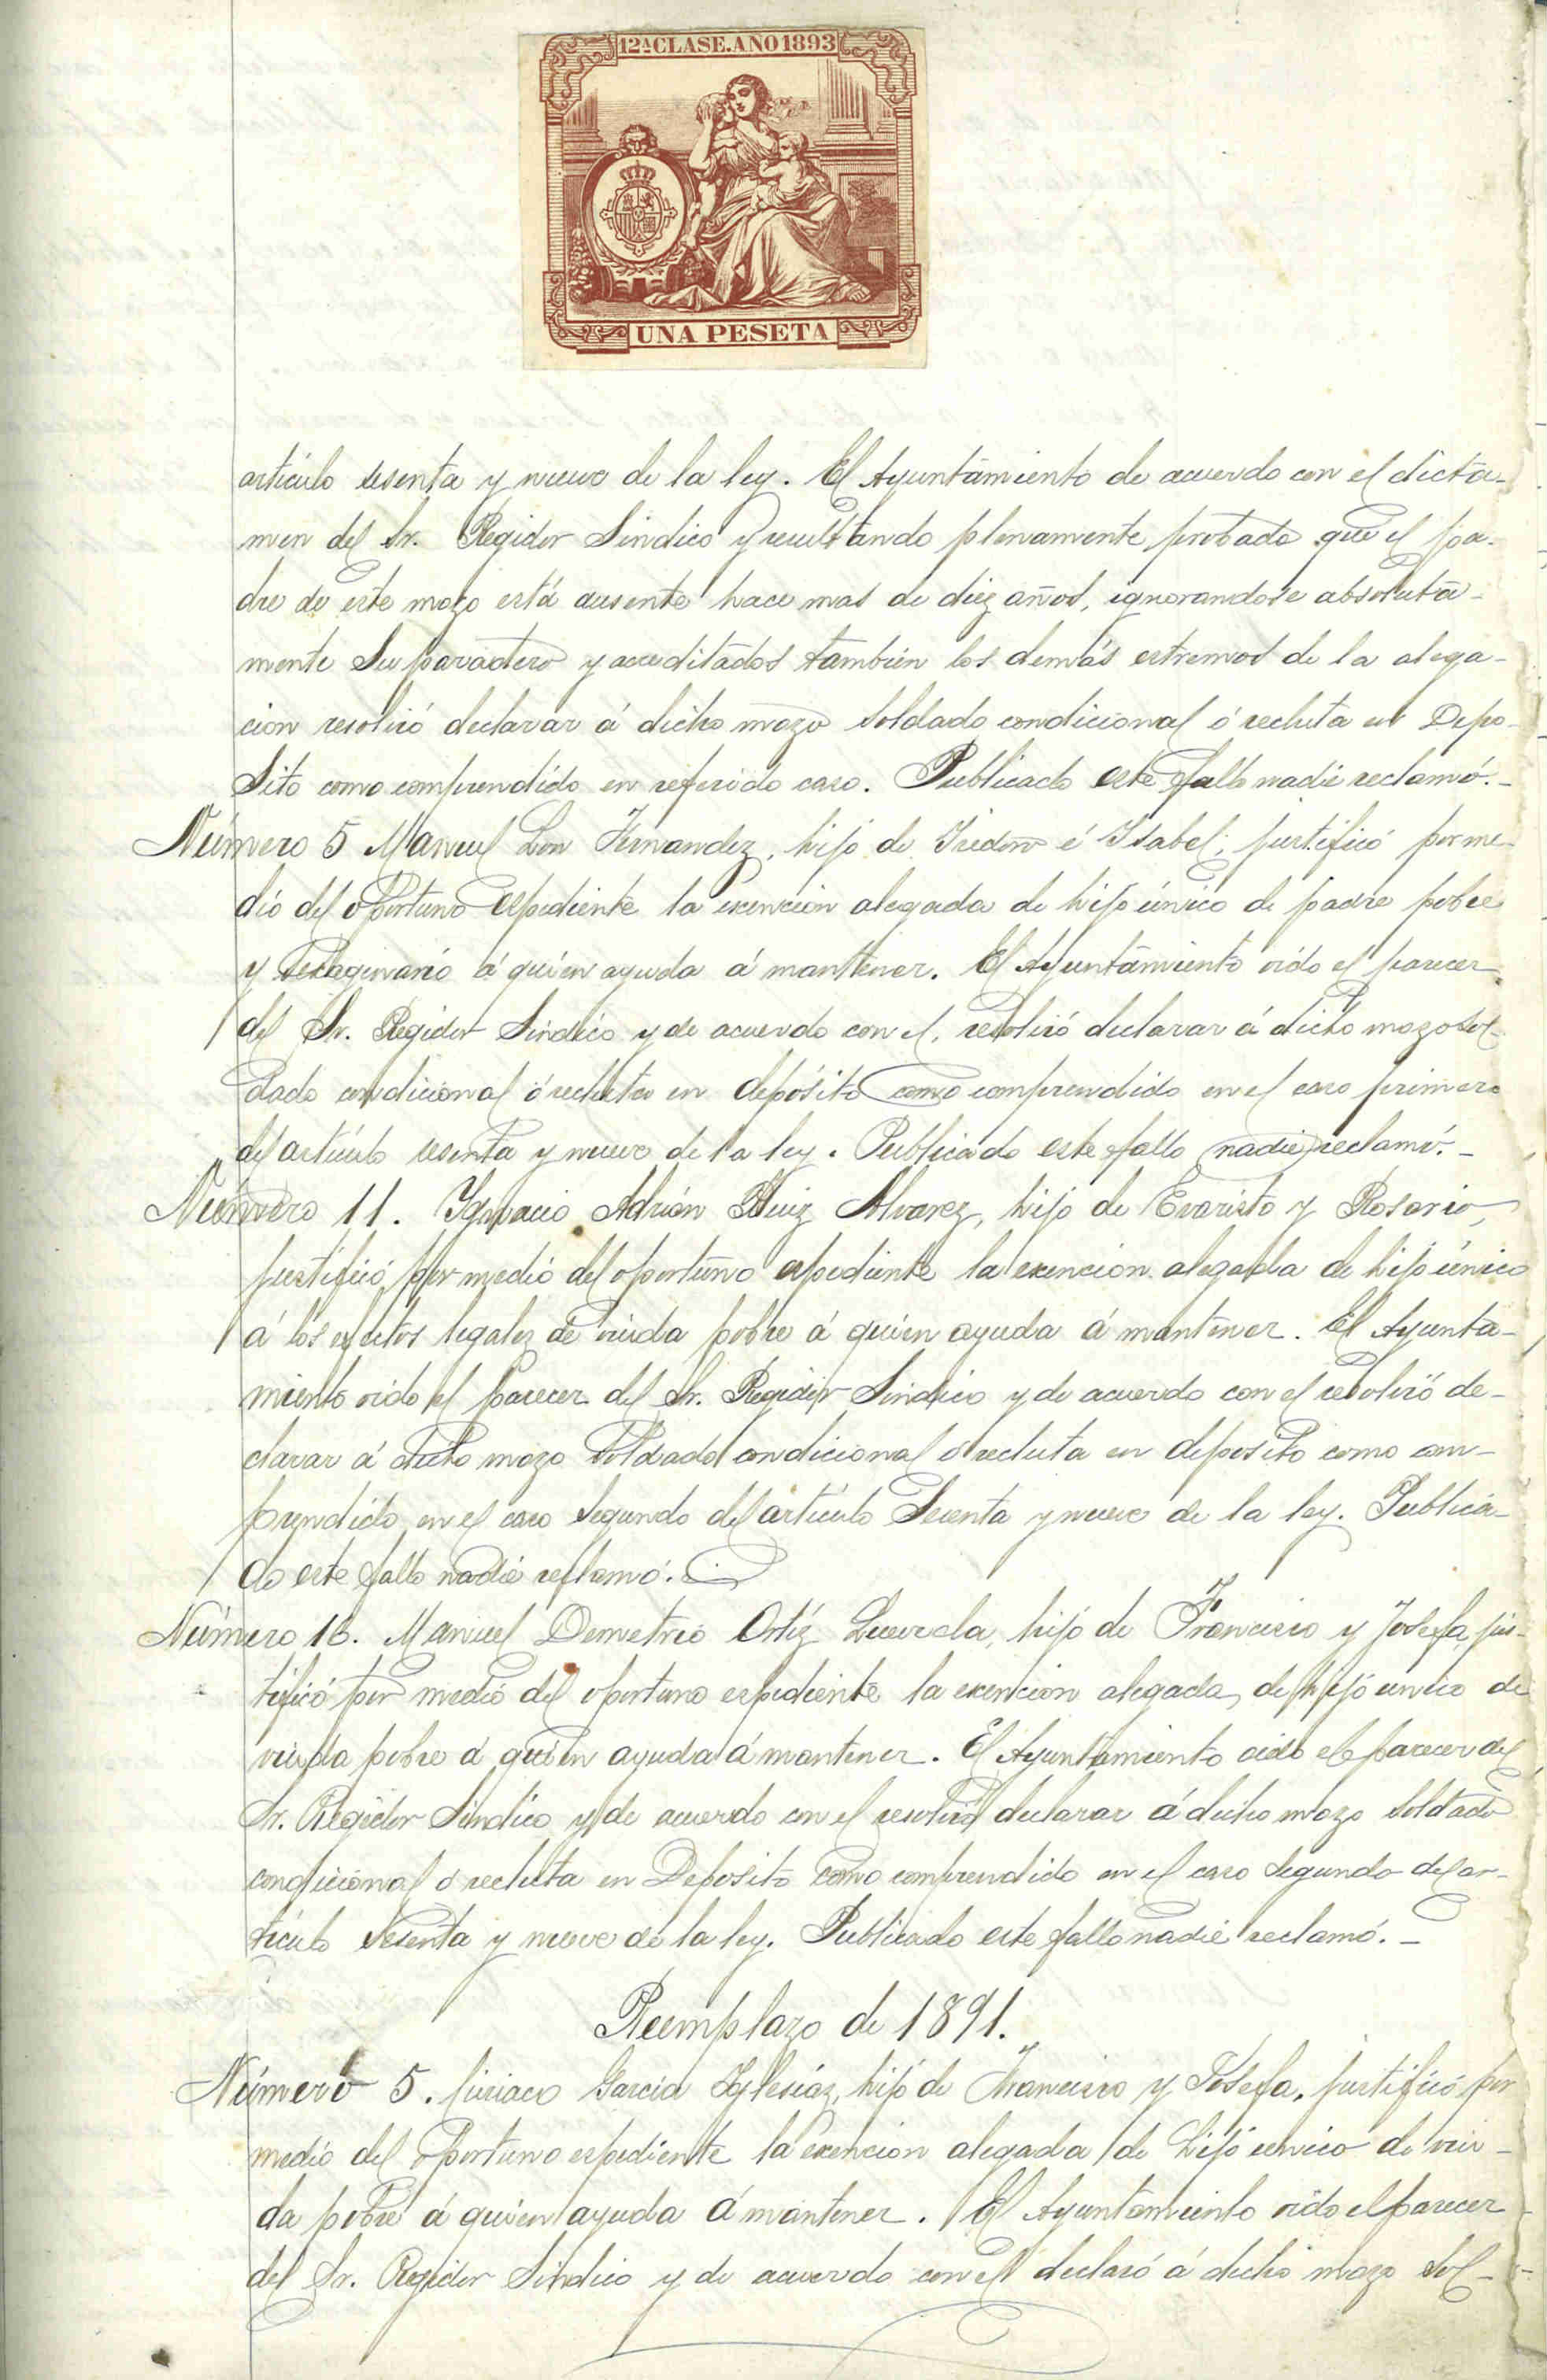 12ª CLASE. AÑO 1893
UNA PESETA
artículo sesenta y nueve de la ley. El Ayuntamiento de acuerdo con el dictá-
men del Sr. Regidor Síndico y resultando plenamente probado que el pa-
dre de este mozo está ausente hace mas de diez años, ignorandose absoluta-
mente su paradero y acreditados también los demás estremos de la alega-
cion resolvió declarar á dicho mozo soldado condicional ó recluta en Depo-
sito como comprendido en referido caso. Publicado este fallo nadie reclamó.-
Número 5 Manuel Leon Fernandez, hijo de Isidoro é Ysabel; justificó por me-
dio del oportuno espediente la exención alegada de hijo único de padre pobre
y sexagenario á quien ayuda á mantener. El Ayuntamiento oido el parecer
del Sr. Regidor Síndico y de acuerdo con el, resolvió declarar á dicho mozo sol-
dado condicional ó recluta en depósito como comprendido en el caso primero
del artículo sesenta y nueve de la ley. Publicado este fallo nadie reclamó.-
Número 11. Ygnacio Adrián Ruiz Alvarez, hijo de Evaristo y Rosario,
justificó por medio del oportuno espediente la exención alegada de hijo único
á los efectos legales de viuda pobre á quien ayuda á mantener. El Ayunta-
miento oido el parecer del Sr. Regidor Síndico y de acuerdo con el resolvió de-
clarar á dicho mozo soldado condicional ó recluta en deposito como com-
prendido en el caso segundo del artículo Sesenta y nueve de la ley. Publica-
do este fallo nadie reclamó.
Número 13. Manuel Demetrio Ortíz, hijo de Francisco y Josefa, jus-
tificó por medio del oportuno espediente la exencion alegada, de hijo único de
viuda pobre á quien ayuda á mantener. El Ayuntamiento oido el parecer del
Sr. Regidor Síndico y de acuerdo con el resolvió declarar á dicho mozo soldado
condicional ó recluta en Deposito como comprendido en el caso segundo del ar-
tículo Sesenta y nueve de la ley. Publicado este fallo nadie reclamó.-
Reemplazo de 1891.
Número 5. Ciriaco García Yglesias, hijo de Francisco y Josefa, justificó por
medio del oportuno espediente la exencion alegada de hijo único de viu-
da pobre á quien ayuda á mantener. El Ayuntamiento oido el parecer
del Sr. Regidor Síndico y de acuerdo con el declaró á dicho mozo sol-